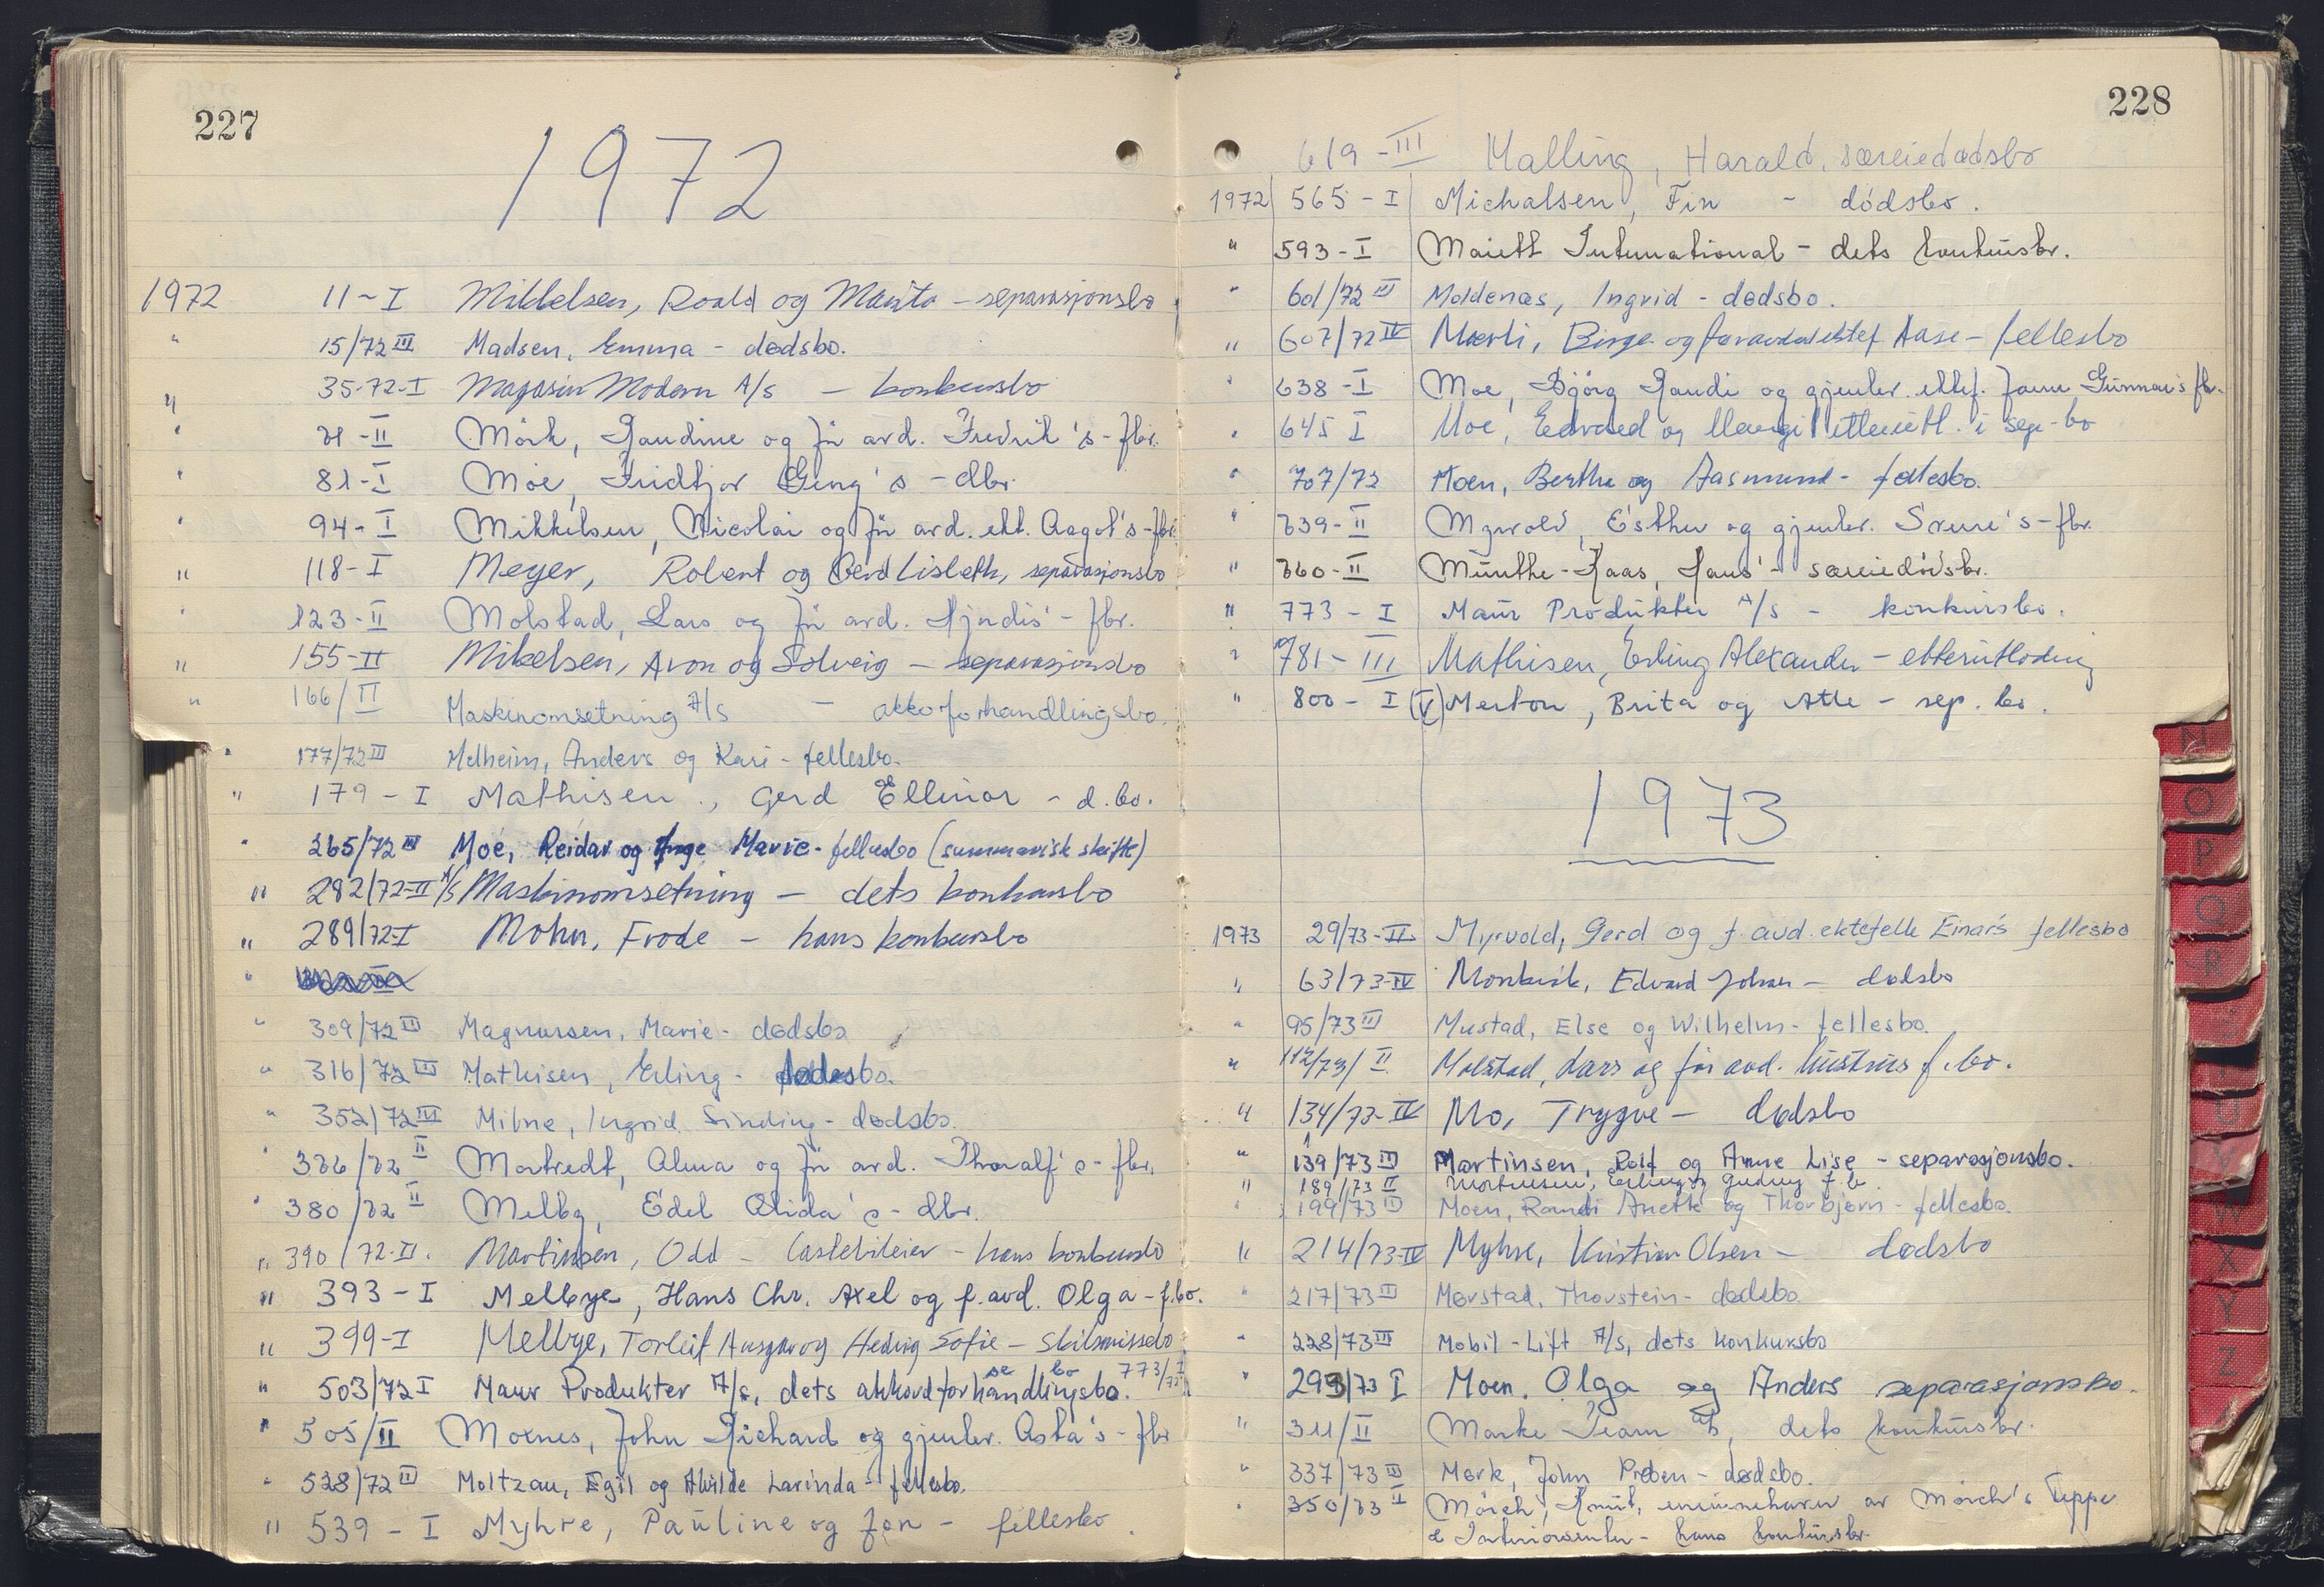 227
1972
1972 11-I Mikkelsen, Roald og Marita - separasjonsbo
" 15/72 III Madsen, Emma - dødsbo.
" 35-72-I Magasin Modern A/S - konkursbo
" 71-II Mörk, Gaudine og fü avd. Fredrik's - fbr.
" 81-I Moe, Fridtjov Geng's - dbr.
" 94-I Mikkelsen, Nicolai og fü avd. ekt. Aagot's - fbr.
" 118-I Meyer, Robert og Gerd Lisbeth, separasjonsbo
" 123-II Molstad, Lars og fü avd. Hjördis' - fbr.
" 155-II Mikelsen, Aron og Solveig - separasjonsbo
" 166/II Maskinomsetning A/S - akkoforhandlingsbo.
" 177/72 III Melheim, Anders og Kari - fellesbo.
" 179-I Mathisen, Gerd Ellinor - d.bo.
" 265/72 III Moe, Reidar og Inge Marie - fellesbo (summarisk skifte)
" 282/72-II A/S Maskinomsetning - dets konkursbo
" 289/72-I Mohn, Frode - hans konkursbo
"
" 309/72 III Magnussen, Marie - dødsbo
" 316/72 III Mathisen, Erling - dødsbo.
" 352/72 III Milne, Ingrid Sinding - dødsbo.
" 376/72 II Mortvedt, Alma og fü avd. Thoralf's - fbr.
" 380/72 II Melby, Edel Alida's - dbr.
" 390/72-II. Martinsen, Odd - Lastebileier - hans konkursbo
" 393-I Melbye, Hans Chr. Axel og f.avd. Olga - f.bo.
" 399-I Melbye, Torleif Ansgar og Hedvig Sofie - skilsmissebo
se bo 773/72 I
" 503/72 I Maur Produkter A/S, dets akkordforhandlingsbo.
" 505/II Moenes, John Richard og gjenlev. Asta's - fbr
" 528/72 III Moltzau, Egil og Alvilde Larinda - fellesbo.
" 539-I Myhre, Pauline og Jon - fellesbo.
228
619-III Malling, Harald, særeiedødsbo
1972 565-I Michalsen, Fin - dödsbo.
" 593-I Maiett International - dets konkursbr.
" 601/72 III Moldenæs, Ingrid - dødsbo.
" 607/72 IV Mærli, Birger og foravdøde ektef Aase - fellesbo
" 638-I Moe, Bjørg Randi og gjenlev. ektef. Gunnar's fbr.
" 645 I Moe, Edvard og Margit i sep-bo
" 707/72 Moen, Berthe og Aasmund - fellesbo.
" 739-II Myrvold, Esther og gjenlev. Sverre's - fbr.
" 760-II Münthe-Kaas, Hans' - særeiedödsbr.
" 773-I Maur Produkter A/S - konkursbo.
" 781-III Mathisen, Erling Alexander - etterutlodning
" 800-I (V) Merton, Brita og Atle - sep. bo.
1973
1973 29/73-II Myrvold, Gerd og f.avd. ektefelle Einar's fellesbo
" 63/73-IV Monkvik, Edvard Johan - dødsbo
" 95/73 III Mustad, Else og Wilhelm - fellesbo.
" 112/73/II Molstad, Lars og før avd. hustrus f.bo.
" 134/73-IV Mo, Trygve - dødsbo
" 139/73 III Martinsen, Rolf og Anne Lise - separasjonsbo.
" 189/73 II Mortensen, Erling og Gudny f.b.
" 199/73 III Moen, Randi Anette og Thorbjørn - fellesbo.
" 214/73-IV Myhre, Kristian Olsen - dødsbo
" 217/73 III Mørstad, Thorstein - dødsbo.
" 228/73 III Mobil-Lift A/S, dets konkursbo
" 293/73 I Moen, Olga og Anders separasjonsbo.
" 311/II Marke Team A/S, dets konkursbr.
" 337/73 III Mørk, John Preben - dødsbo.
" 350/73 II Mörch, Knut, eneinnehaver av Mörch's Teppe
& Interiørsenter - hans konkursbr.
N
O
P
Q
R
U
V
W
X
Y
Z